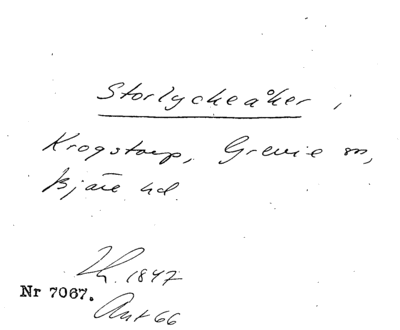 Storlyckeåker i
Krogstorp, Grevie sn,
Bjäre hd.
Lh. 1847
Nr 7067.
Ant 66